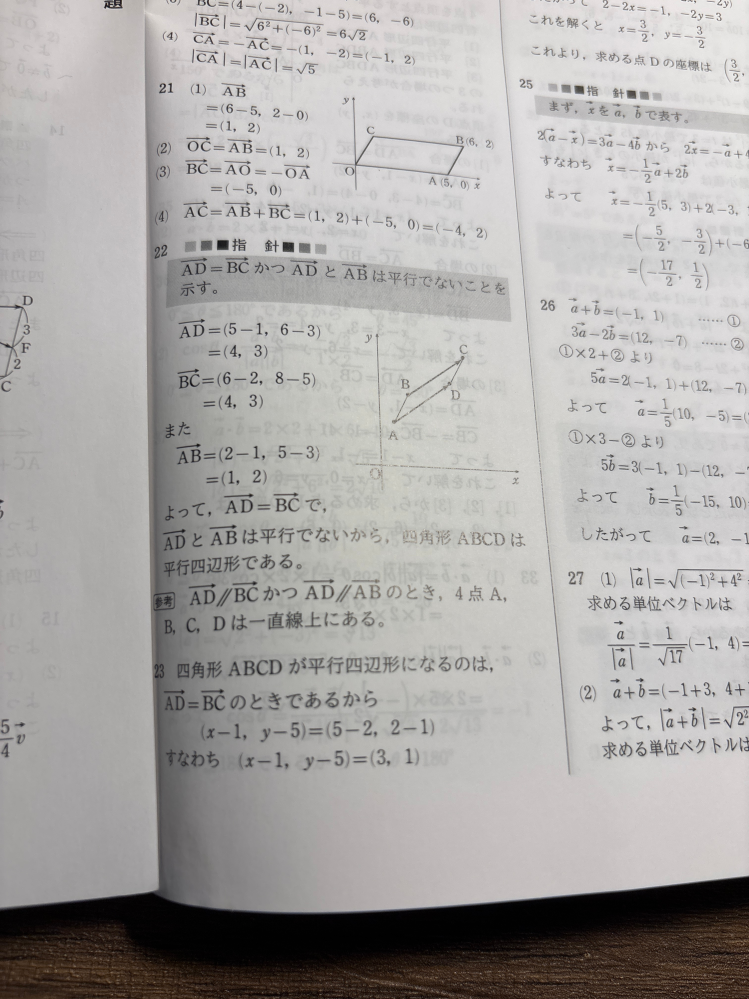 題
D
3
F
2
C
5/4 v→
(3) BC→=(4-(-2), -1-5)=(6, -6)
|BC→|=√(6²+(-6)²)=6√2
(4) CA→=-AC→=-(-1, -2)=(-1, 2)
|CA→|=|AC→|=√5
21 (1) AB→
=(6-5, 2-0)
=(1, 2)
(2) OC→=AB→=(1, 2)
(3) BC→=AO→=-OA→
=(-5, 0)
y
C
B(6, 2)
O
A(5, 0) x
(4) AC→=AB→+BC→=(1, 2)+(-5, 0)=(-4, 2)
22 指 針
AD→=BC→かつ AD→ と AB→は平行でないことを
示す。
AD→=(5-1, 6-3)
=(4, 3)
BC→=(6-2, 8-5)
=(4, 3)
また
AB→=(2-1, 5-3)
=(1, 2)
y
C
B
D
A
O
x
よって, AD→=BC→で,
AD→と AB→は平行でないから, 四角形 ABCD は
平行四辺形である。
参考 AD→∥BC→かつ AD→∥AB→のとき, 4点 A,
B, C, D は一直線上にある。
23 四角形 ABCD が平行四辺形になるのは,
AD→=BC→のときであるから
(x-1, y-5)=(5-2, 2-1)
すなわち (x-1, y-5)=(3, 1)
2-2x=-1, -2y=3
これを解くと x=3/2, y=-3/2
これより, 求める点 D の座標は (3/2,
25 指 針
まず, x→を a→, b→で表す。
2(a→-x→)=3a→-4b→ から 2x→=-a→+4
すなわち x→=-1/2a→+2b→
よって x→=-1/2(5, 3)+2(-3,
=(-5/2, -3/2)+(-6
=(-17/2, 1/2)
26 a→+b→=(-1, 1) ……①
3a→-2b→=(12, -7) ……②
①×2+② より
5a→=2(-1, 1)+(12, -7
よって a→=1/5(10, -5)=(
①×3-② より
5b→=3(-1, 1)-(12, -
よって b→=1/5(-15, 10)
したがって a→=(2, -1
27 (1) |a→|=√((-1)²+4²)
求める単位ベクトルは
a→/|a→|=1/√17(-1, 4)=
(2) a→+b→=(-1+3, 4+
よって, |a→+b→|=√2²
求める単位ベクトルは